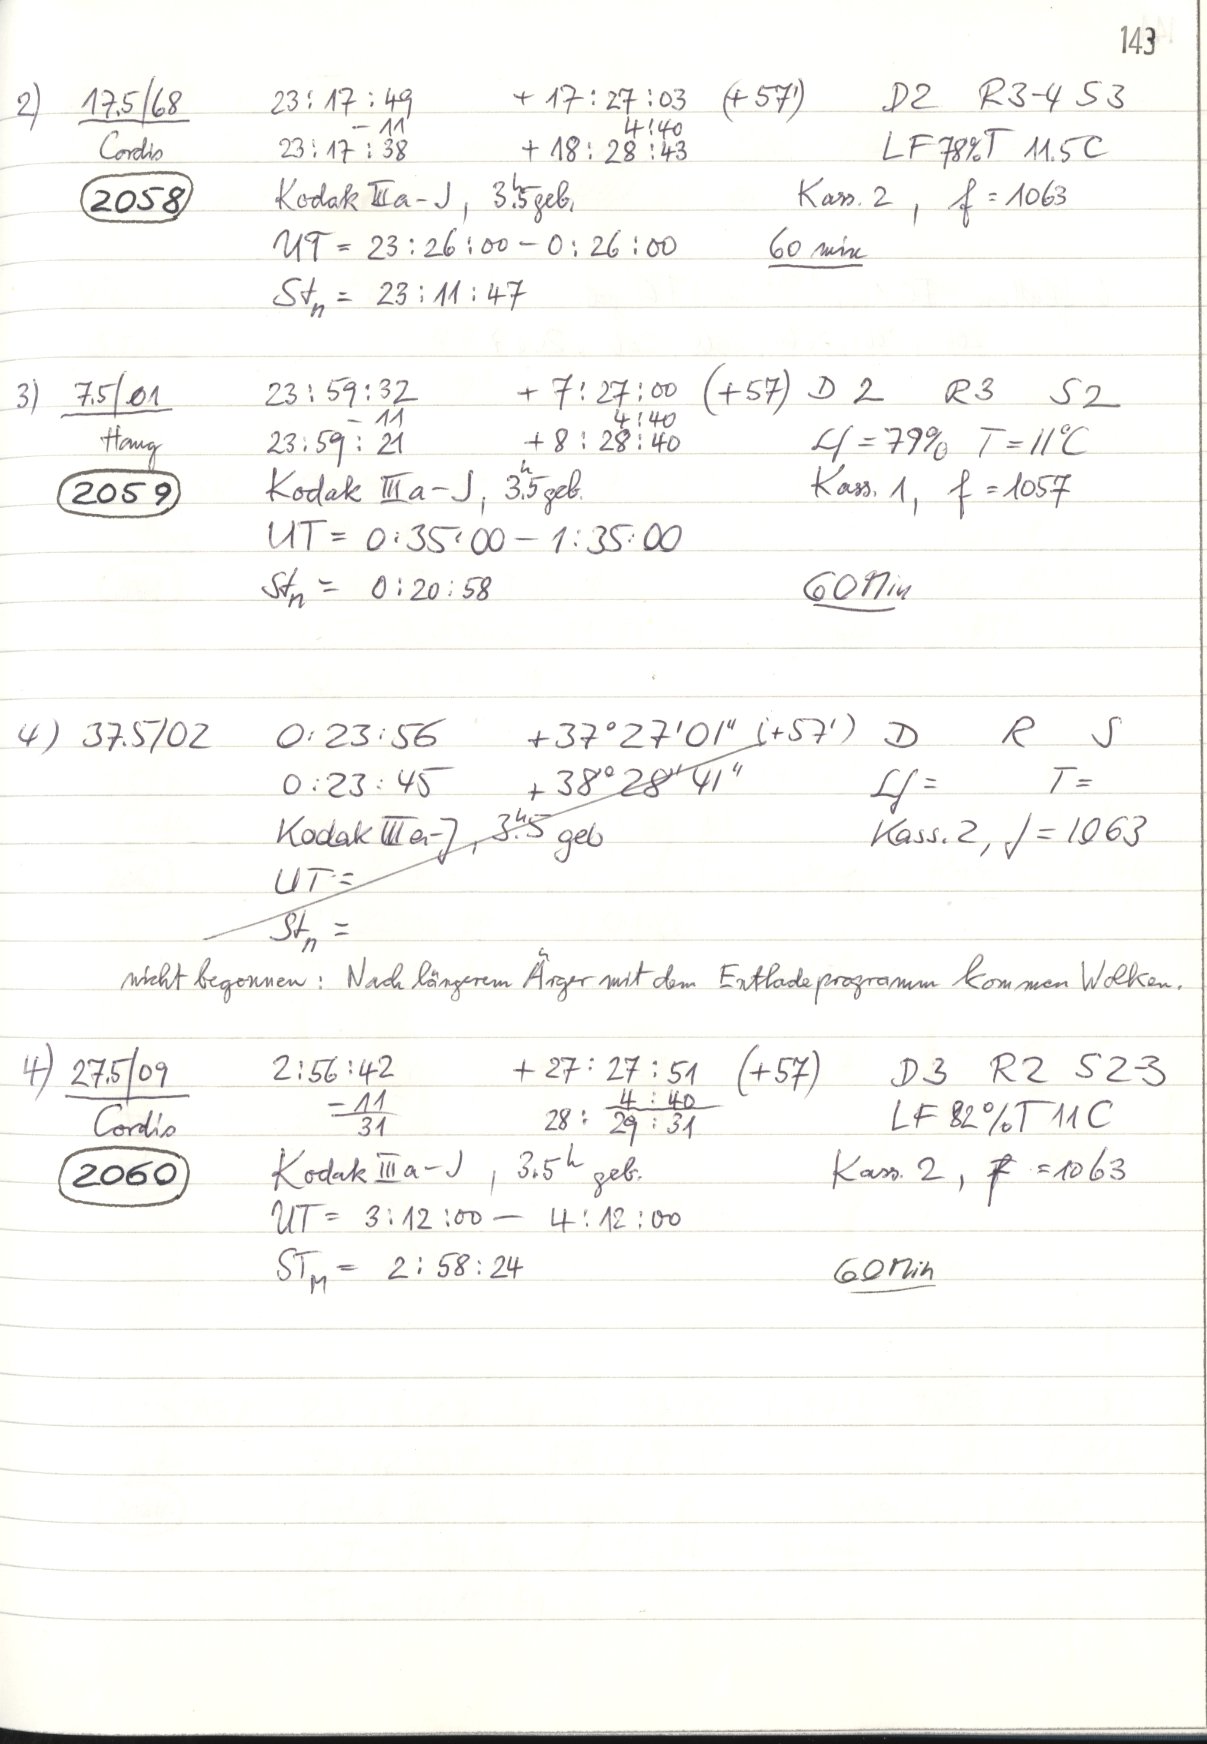 143
2) 17.5/68 23:17:49 + 17:27:03 (+57') D2 R3-4 S3
- 11 4:40
Cordis 23:17:38 + 18:28:43 LF 78% T 11.5C
2058 Kodak IIIa-J, 3.5h geb. Kass. 2, f = 1063
UT = 23:26:00 - 0:26:00 60 min
Stn = 23:11:47
3) 7.5/01 23:59:32 + 7:27:00 (+57) D 2 R3 S2
- 11 4:40
Haug 23:59:21 + 8:28:40 Lf = 79% T = 11°C
2059 Kodak IIIa-J, 3.5h geb. Kass. 1, f = 1057
UT = 0:35:00 - 1:35:00
Stn = 0:20:58 60 Min
4) 37.5/02 0:23:56 +37°27'01" (+57') D R S
0:23:45 + 38°28'41" Lf = T =
Kodak IIIa-J, 3.5h geb Kass. 2, f = 1063
UT =
Stn =
nicht begonnen: Nach längerem Ärger mit dem Entladeprogramm kommen Wolken.
4) 27.5/09 2:56:42 + 27:27:51 (+57) D3 R2 S2-3
- 11 4:40
Cordis 31 28:29:31 LF 82% T 11C
2060 Kodak IIIa-J, 3.5h geb. Kass. 2, f = 1063
UT = 3:12:00 - 4:12:00
STM = 2:58:24 60 Min